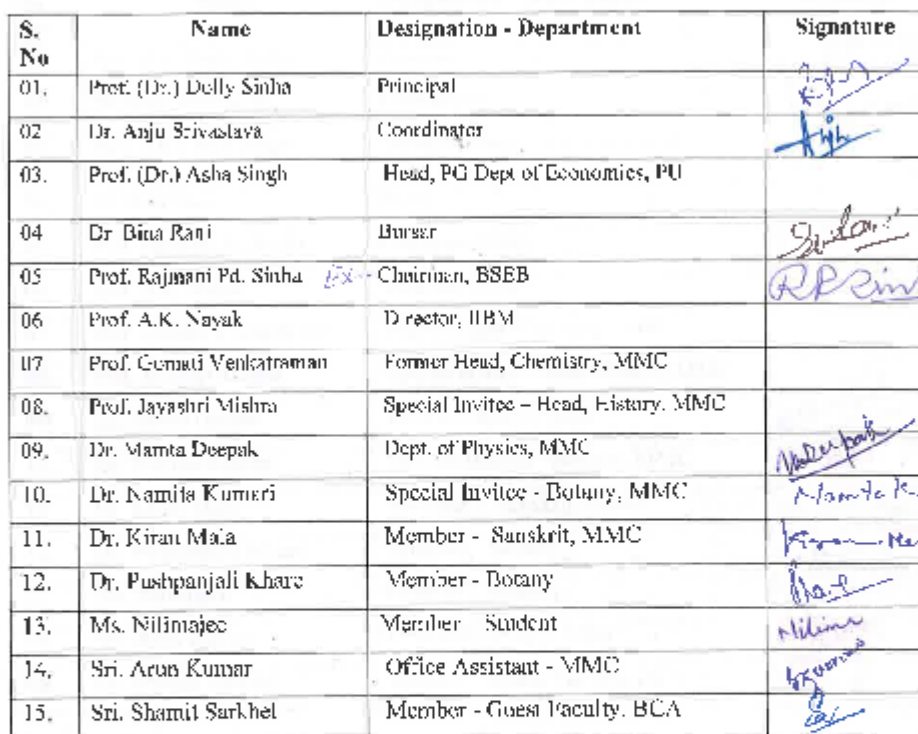 S. No Name Designation - Department Signature
01. Prof. (Dr.) Dolly Sinha Principal
02 Dr. Anju Srivastava Coordinator
03. Prof. (Dr.) Asha Singh Head, PG Dept of Economics, PU
04 Dr. Bina Rani Bursar
05 Prof. Rajmani Pd. Sinha Ex- Chairman, BSEB RPSin
06 Prof. A.K. Nayak Director, IIBM
07 Prof. Gomati Venkatraman Former Head, Chemistry, MMC
08. Prof. Jayashri Mishra Special Invitee – Head, History, MMC
09. Dr. Mamta Deepak Dept. of Physics, MMC
10. Dr. Namita Kumari Special Invitee - Botany, MMC Namita K.
11. Dr. Kiran Mala Member - Sanskrit, MMC Kiran Ma
12. Dr. Pushpanjali Khare Member - Botany Khare
13. Ms. Nilimajee Member - Student Nilima
14. Sri. Arun Kumar Office Assistant - MMC
15. Sri. Shamit Sarkhel Member - Guest Faculty, BCA